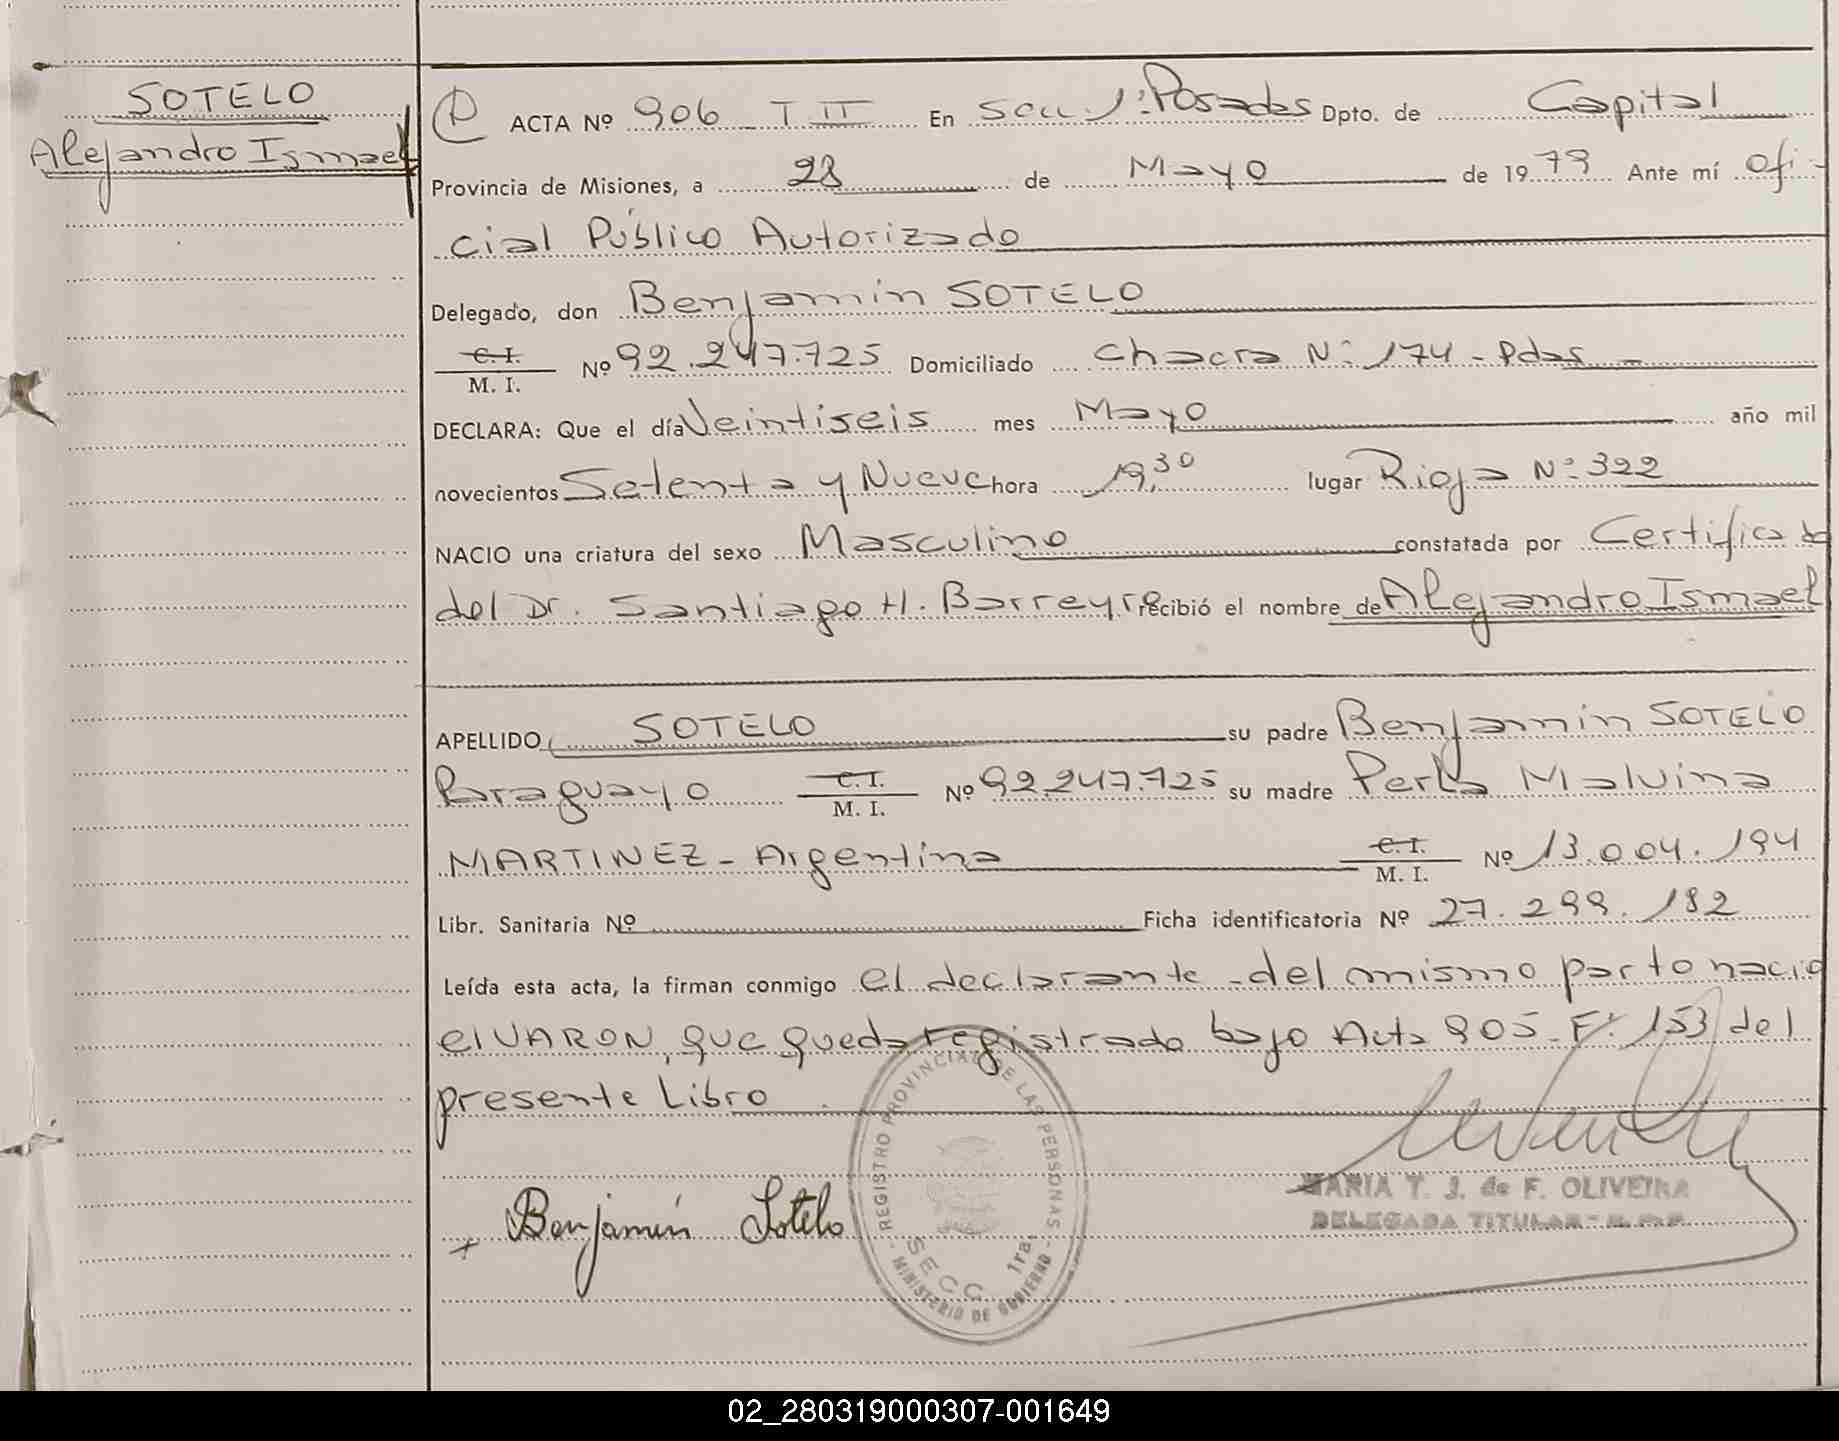 SOTELO
Alejandro Ismael
ACTA Nº 906 T II En Secc 1ª Posadas Dpto. de Capital
Provincia de Misiones, a 28 de Mayo de 1979 Ante mí Ofi-
cial Público Autorizado
Delegado, don Benjamin SOTELO
C. I.
M. I. Nº 92.247.725 Domiciliado Chacra Nº 174 - Pdas -
DECLARA: Que el día Veintiseis mes Mayo año mil
novecientos Setenta y Nueve hora 19,30 lugar Rioja Nº 322
NACIO una criatura del sexo Masculino constatada por Certificado
del Dr. Santiago H. Barreyro recibió el nombre de Alejandro Ismael
APELLIDO SOTELO su padre Benjamin SOTELO
Paraguayo C. I. M. I. Nº 92.247.725 su madre Perla Malvina
MARTINEZ - Argentina C. I. M. I. Nº 13.004.194
Libr. Sanitaria Nº Ficha identificatoria Nº 27.299.182
Leída esta acta, la firman conmigo el declarante - del mismo parto nació
el VARON, que queda registrado bajo Acta 905 - Fº 153 del
presente Libro
Benjamín Sotelo
REGISTRO PROVINCIAL DE LAS PERSONAS
SECC. 1ra.
MINISTERIO DE GOBIERNO
MARIA T. J. de F. OLIVEIRA
DELEGADA TITULAR - R. P. P.
02_280319000307-001649